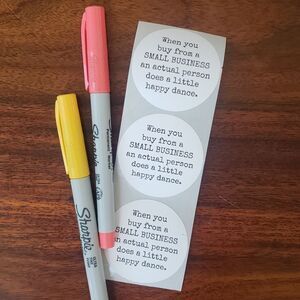 When you
buy from a
SMALL BUSINESS
an actual person
does a little
happy dance.
When you
buy from a
SMALL BUSINESS
an actual person
does a little
happy dance.
When you
buy from a
SMALL BUSINESS
an actual person
does a little
happy dance.
Sharpie
Sharpie